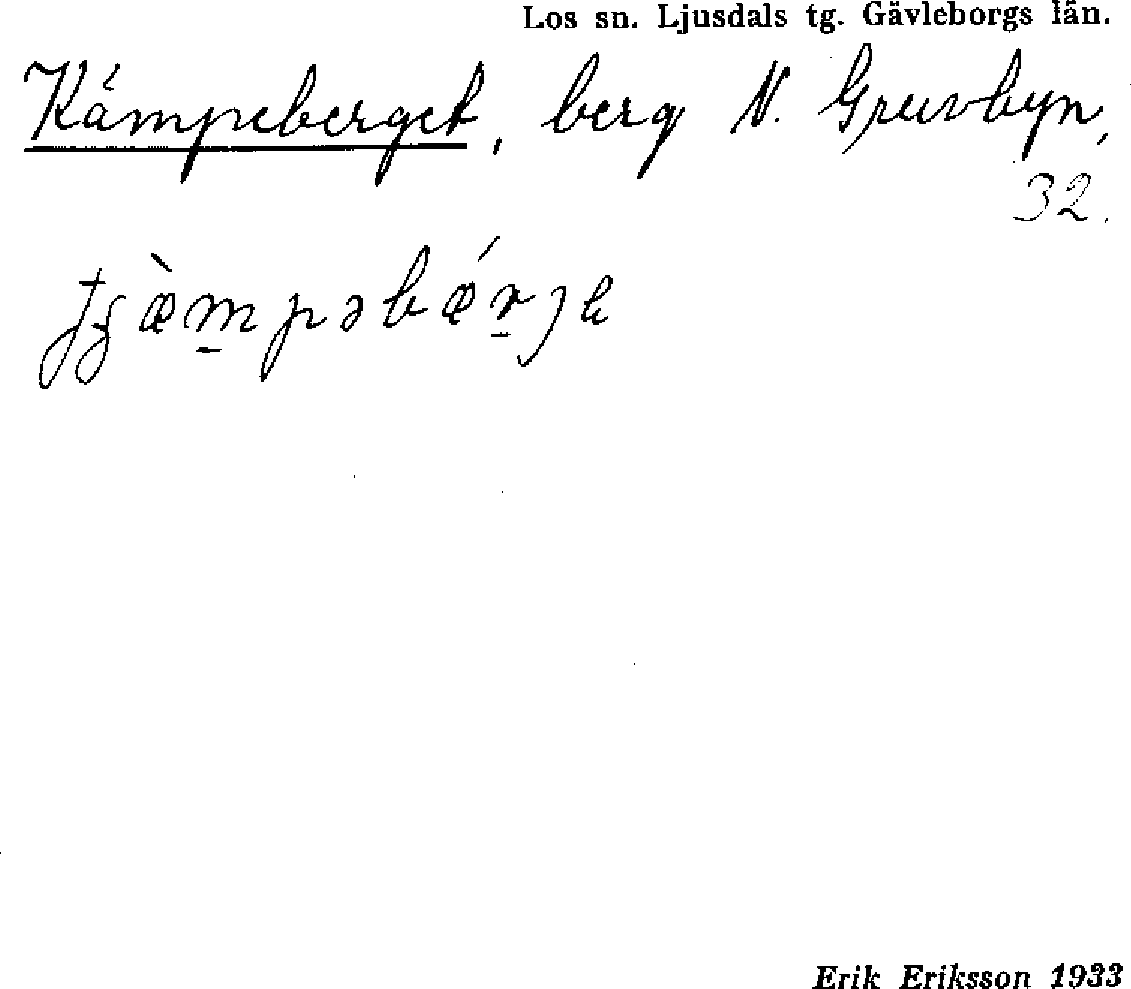 Los sn. Ljusdals tg. Gävleborgs län.
Kämpeberget, berg N. Gruvbyn,
32.
tjæ̀m̱pəbǽṟje
Erik Eriksson 1933